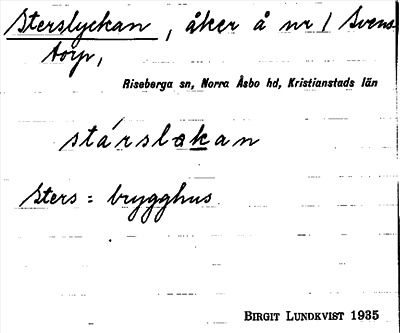 Sterslyckan, åker å nr 1 Svens-
torp,
Riseberga sn, Norra Åsbo hd, Kristianstads län
stárslɵkan
Sters = brygghus
BIRGIT LUNDKVIST 1935